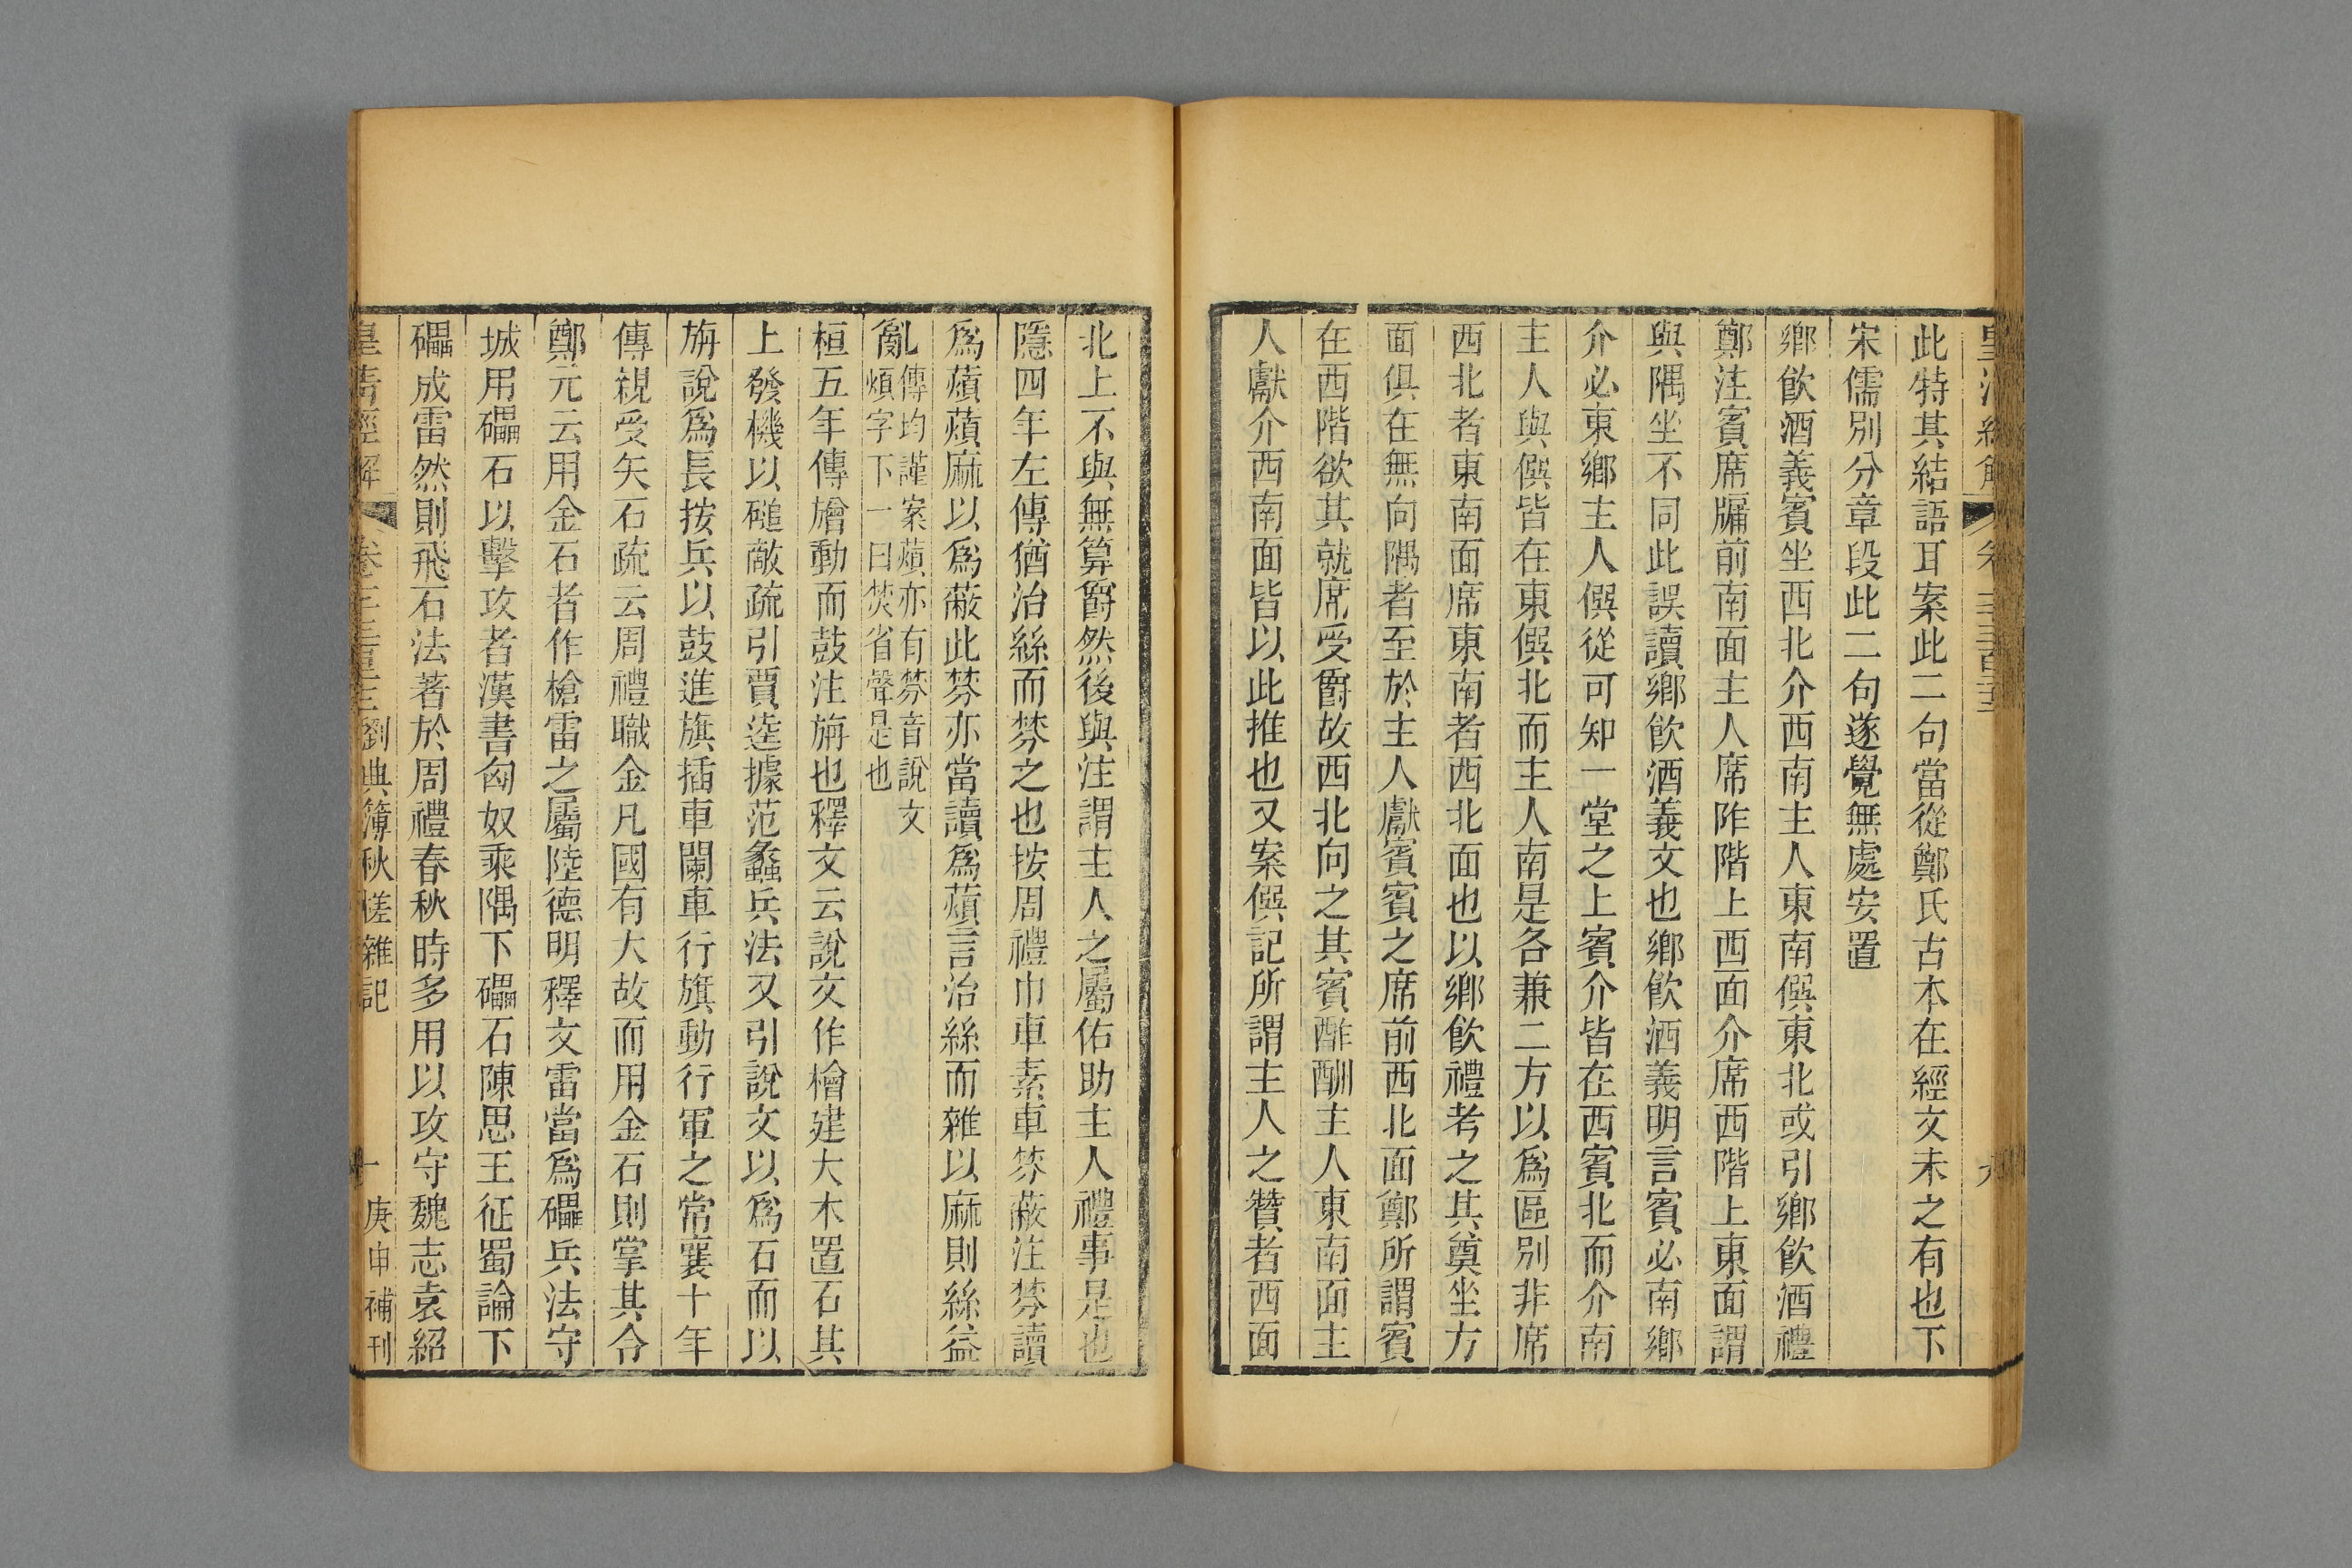 此特其結語耳案此二句當從鄭氏古本在經文未之有也下
宋儒別分章段此二句遂覺無處安置
鄉飮酒義賓坐西北介西南主人東南僎東北或引鄉飮酒禮
鄭注賓席牖前南面主人席阼階上西面介席西階上東面謂
與隅坐不同此誤讀鄉飮酒義文也鄉飮酒義明言賓必南鄉
介必東鄉主人僎從可知一堂之上賓介皆在西賓北而介南
主人與僎皆在東僎北而主人南是各兼二方以爲區別非席
西北者東南面席東南者西北面也以鄉飮禮考之其奠坐方
面俱在無向隅者至於主人獻賓賓之席前西北面鄭所謂賓
在西階欲其就席受爵故西北向之其賓酢酬主人東南面主
人獻介西南面皆以此推也又案僎記所謂主人之贊者西面
北上不與無算爵然後與注謂主人之屬佑助主人禮事是也
隱四年左傳猶治絲而棼之也按周禮巾車素車棼蔽注棼讀
爲薠薠麻以爲蔽此棼亦當讀爲薠言治絲而雜以麻則絲益
亂傳均謹案薠亦有棼音說文
煩字下一曰焚省聲是也
桓五年傳旝動而鼓注旃也釋文云說文作檜建大木置石其
上發機以磓敵疏引賈逵據范蠡兵法又引說文以爲石而以
旃說爲長按兵以鼓進旗插車闌車行旗動行軍之常襄十年
傳親受矢石疏云周禮職金凡國有大故而用金石則掌其令
鄭元云用金石者作槍雷之屬陸德明釋文雷當爲礧兵法守
城用礧石以擊攻者漢書匈奴乘隅下礧石陳思王征蜀論下
礧成雷然則飛石法著於周禮春秋時多用以攻守魏志袁紹
皇清經解 劉典簿秋槎雜記 一 庚申補刊